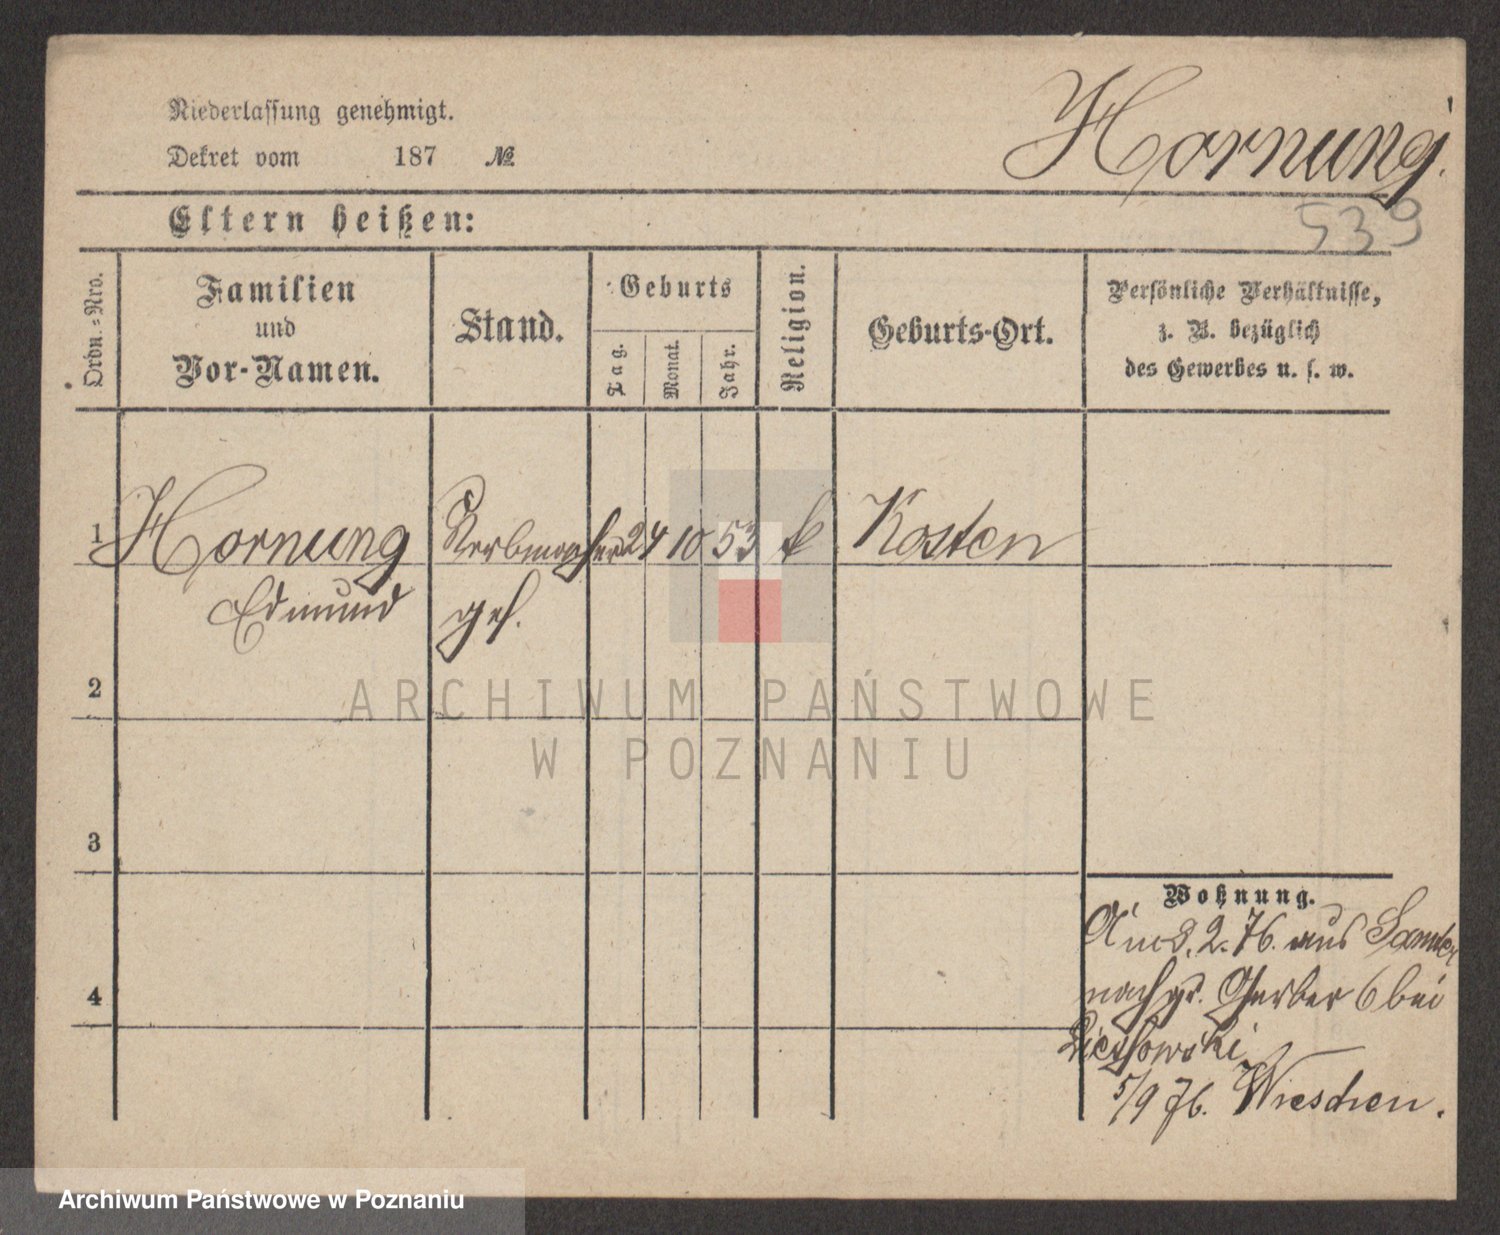 Niederlassung genehmigt.
Hornung.
Dekret vom 187 №
Eltern heißen:
539
Ordn.=Nro.
Familien
und
Vor-Namen.
Stand.
Geburts
Tag.
Monat.
Jahr.
Religion.
Geburts-Ort.
Persönliche Verhältnisse,
z. B. bezüglich
des Gewerbes u. s. w.
1 Hornung Korbmacher 24 10 53 k Kosten
Edmund gef.
2
ARCHIWUM PAŃSTWOWE
W POZNANIU
3
Wohnung.
2. 76. aus Samter
4
nach gr. Gerber 6 bei
5/9 76. Wreschen.
Archiwum Państwowe w Poznaniu